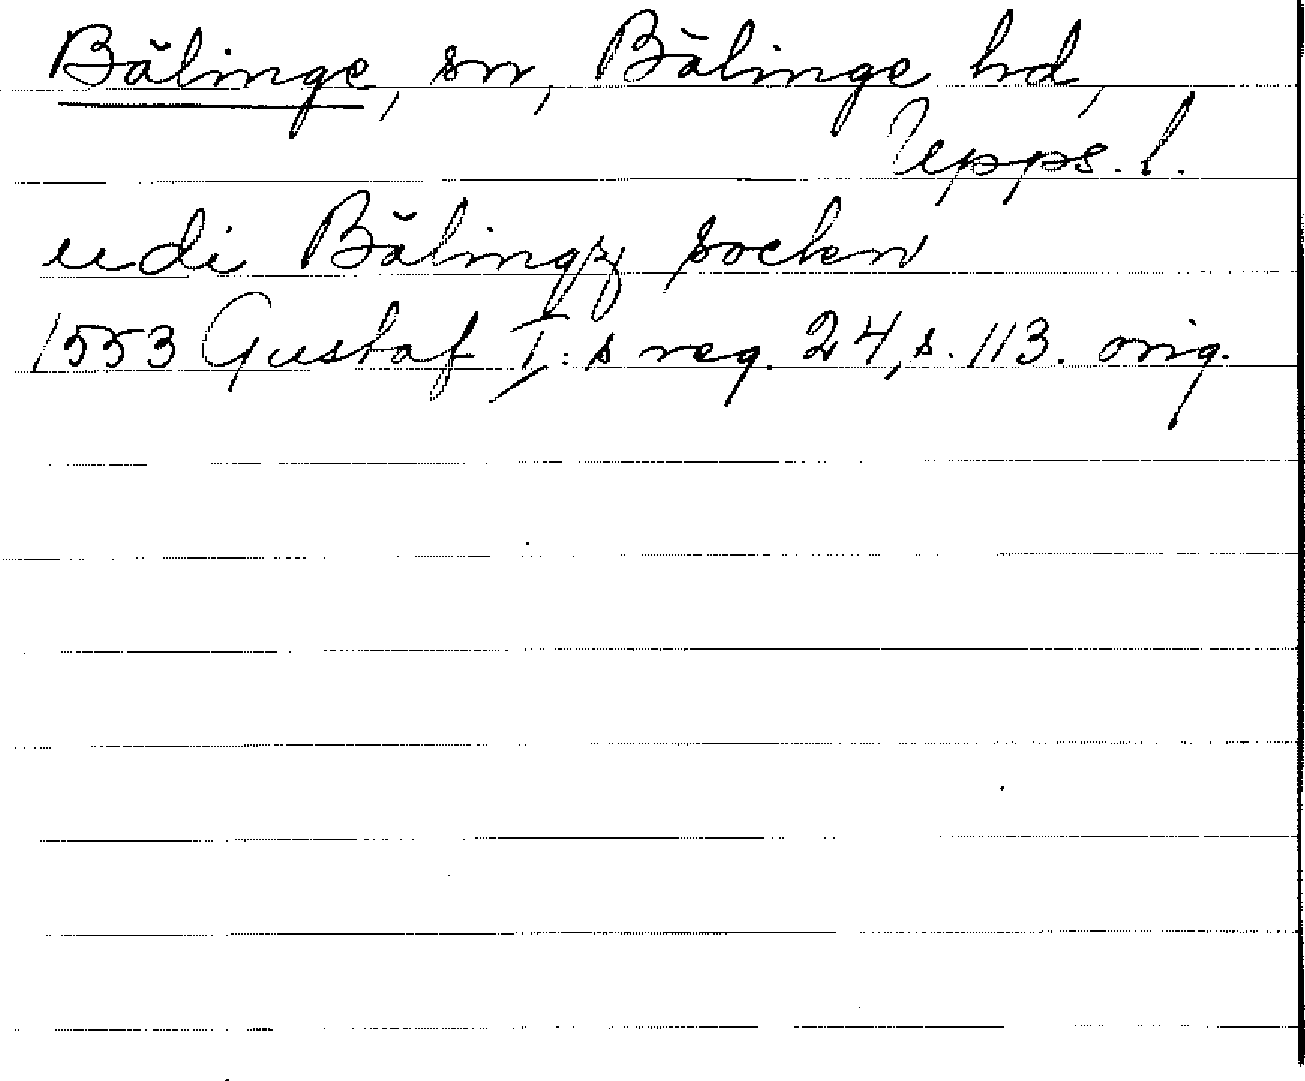 Bälinge, sn, Bälinge hd,
Upps. l.
udi Bälingz sockn
1553 Gustaf I: s reg. 24, s. 113. orig.